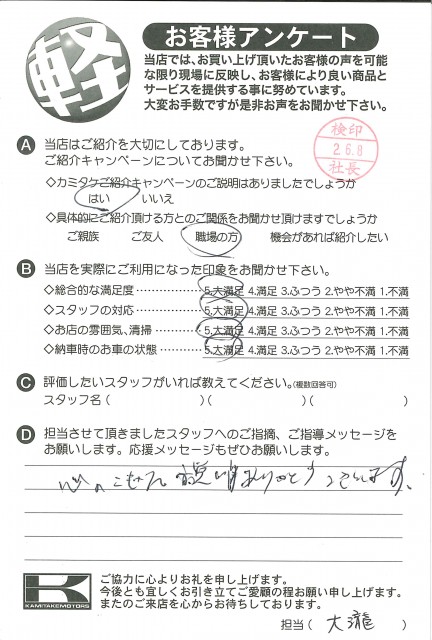 軽
お客様アンケート
当店では、お買い上げ頂いたお客様の声を可能
な限り現場に反映し、お客様により良い商品と
サービスを提供する事に努めています。
大変お手数ですが是非お声をお聞かせ下さい。
検印
2 6.8
社長
A 当店はご紹介を大切にしております。
ご紹介キャンペーンについてお聞かせ下さい。
◇カミタケご紹介キャンペーンのご説明はありましたでしょうか
はい いいえ
◇具体的にご紹介頂ける方とのご関係をお聞かせ頂けますでしょうか
ご親族 ご友人 職場の方 機会があれば紹介したい
B 当店を実際にご利用になった印象をお聞かせ下さい。
◇総合的な満足度……………5.大満足 4.満足 3.ふつう 2.やや不満 1.不満
◇スタッフの対応……………5.大満足 4.満足 3.ふつう 2.やや不満 1.不満
◇お店の雰囲気、清掃………5.大満足 4.満足 3.ふつう 2.やや不満 1.不満
◇納車時のお車の状態………5.大満足 4.満足 3.ふつう 2.やや不満 1.不満
C 評価したいスタッフがいれば教えてください。(複数回答可)
スタッフ名( )( )( )
D 担当させて頂きましたスタッフへのご指摘、ご指導メッセージを
お願いします。応援メッセージもぜひお願いします。
心のこもった説明ありがとうございます。
K
KAMITAKEMOTORS
ご協力に心よりお礼を申し上げます。
今後とも宜しくお引き立てご愛顧の程お願い申し上げます。
またのご来店を心からお待ちしております。
担当( 大瀧 )